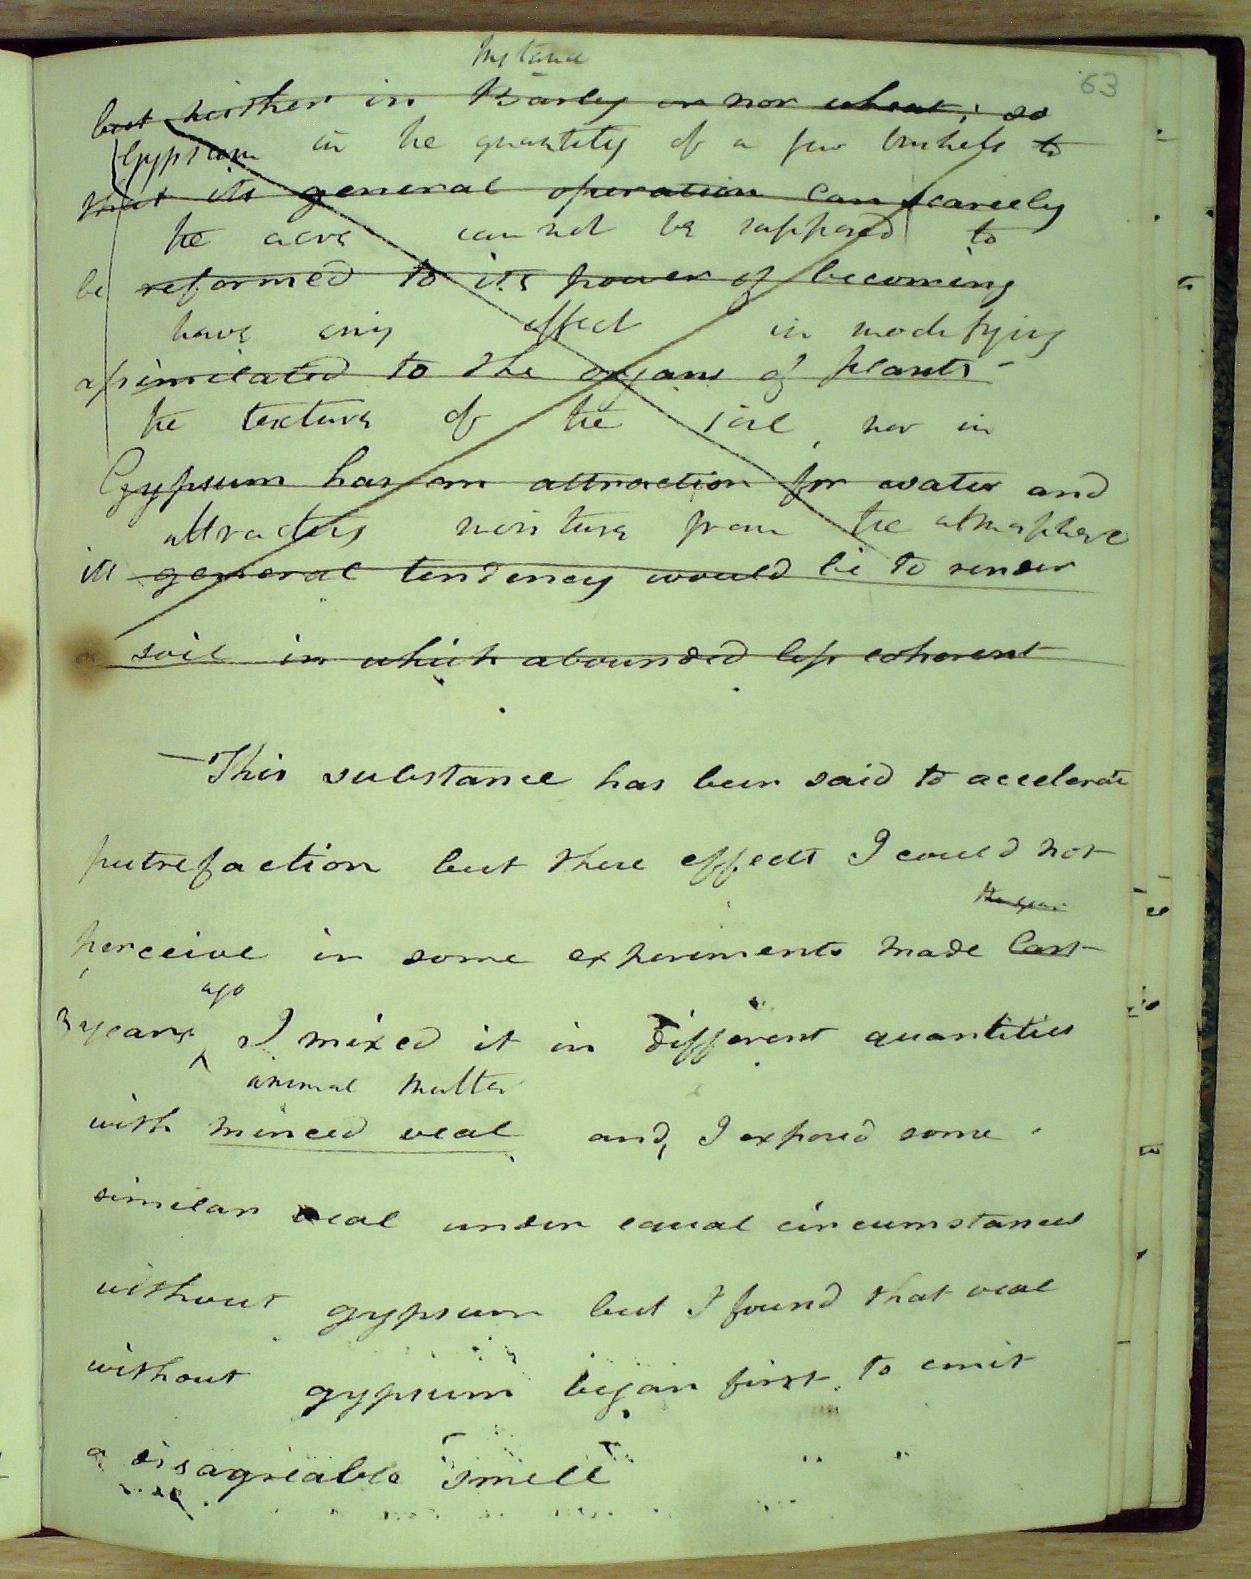 Instance
63
but neither in Barley or nor wheat; so
Gypsum in the quantity of a few bushels to
that its general operation can scarcely
the acre cannot be supposed to
be reformed to its power of becoming
have any effect in modifying
assimilated to the organs of plants -
the texture of the soil, nor in
Gypsum has an attraction for water and
attracting moisture from the atmosphere
its general tendency would be to render
soil in which abounded less coherent
— This substance has been said to accelerate
putrefaction but these effects I could not
perceive in some experiments made last
ago
3 years I mixed it in different quantities
animal matter
with minced veal and, I exposed some
similar veal under equal circumstances
without gypsum but I found that veal
without gypsum began first to emit
a disagreable smell